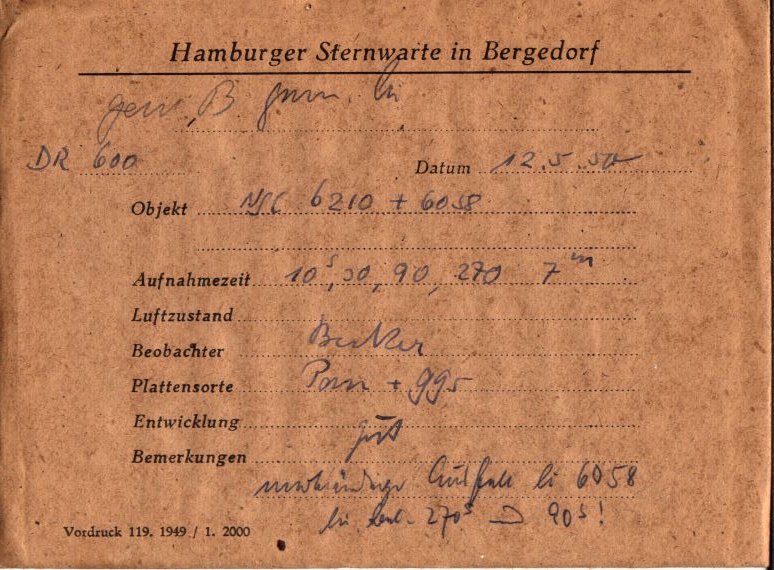 Hamburger Sternwarte in Bergedorf
DR 600
Datum 12.5.50
Objekt NGC 6210 + 6058
Aufnahmezeit 10ˢ, 30, 90, 270 7ᵐ
Luftzustand
Beobachter Becker
Plattensorte + 995
Entwicklung
Bemerkungen gut
6058
270ˢ 90ˢ!
Vordruck 119. 1949 / 1. 2000